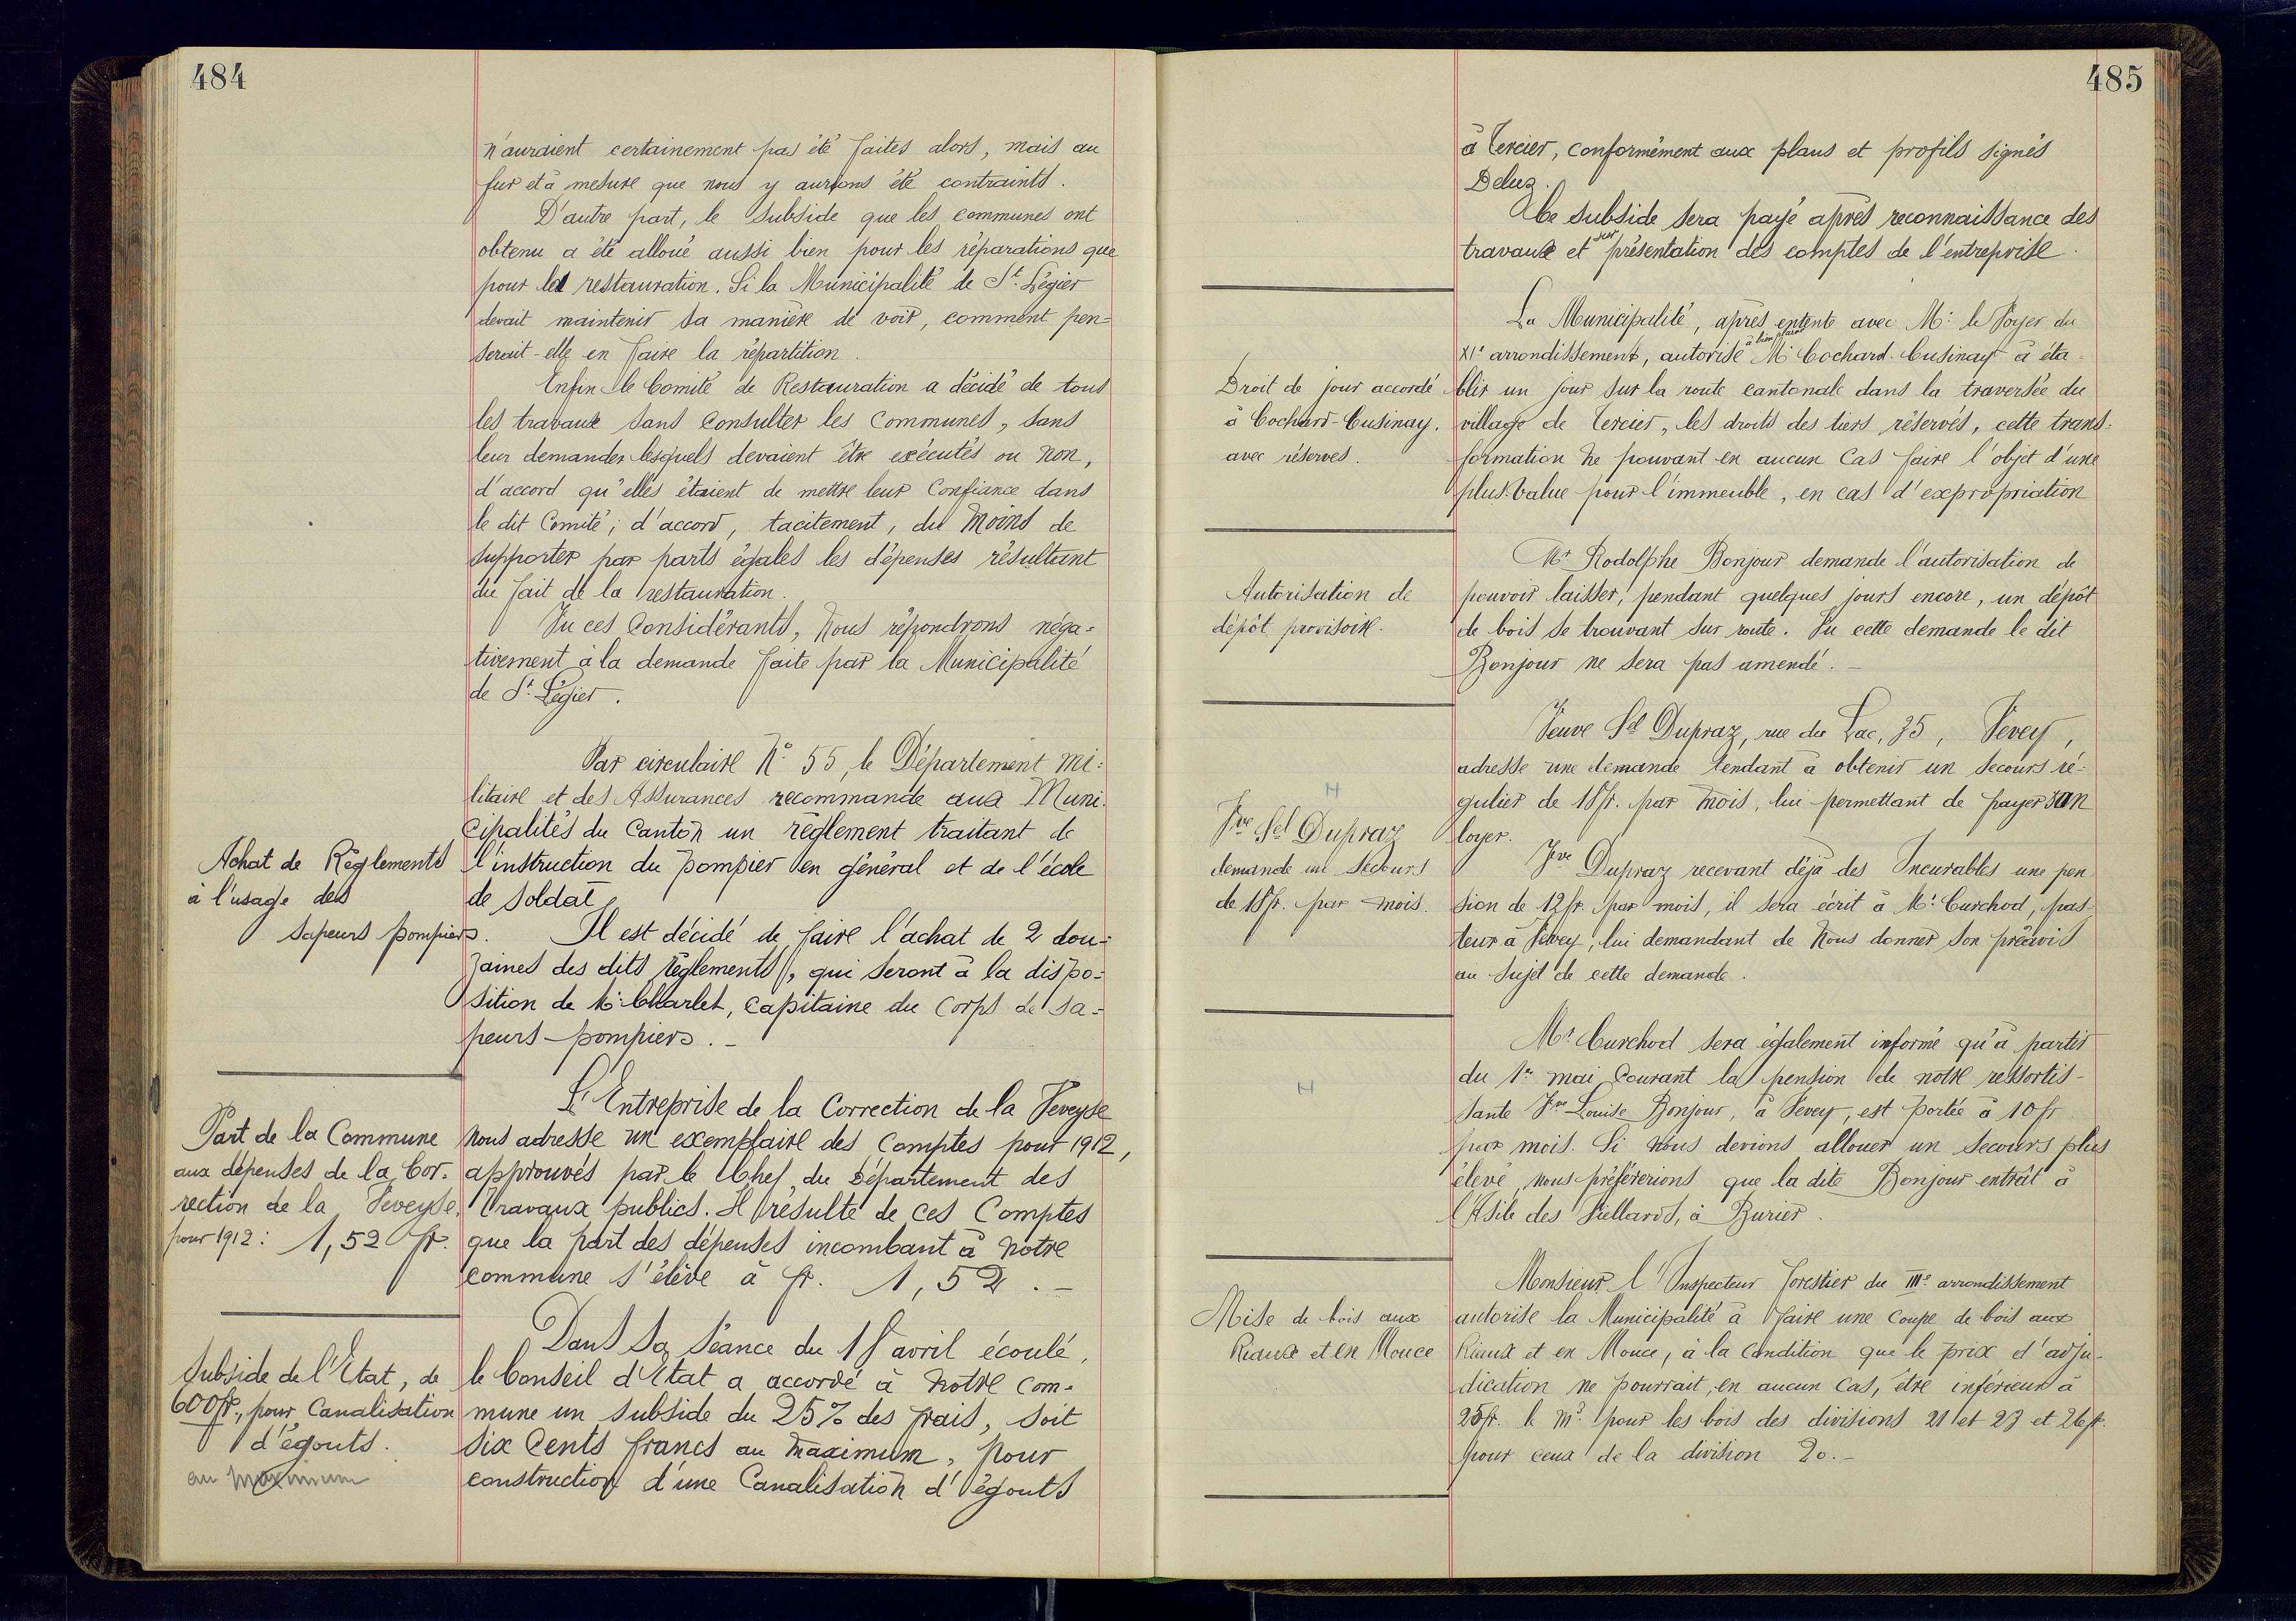 484
n'auraient certainement pas été faites alors, mais au
fur et à mesure que nous y aurions été contraints.
D'autre part, le subside que les communes ont
obtenu a été alloué aussi bien pour les réparations que
pour la restauration. Si la Municipalité de St. Légier
devait maintenir sa manière de voir, comment pen=
serait-elle en faire la répartition.
Enfin le Comité de Restauration a décidé de tous
les travaux sans consulter les Communes, sans
leur demander lesquels devaient être exécutés ou non,
d'accord qu'elles étaient de mettre leur confiance dans
le dit Comité; d'accord, tacitement, du moins de
supporter par parts égales les dépenses résultant
du fait de la restauration.
Vu ces Considérants, nous répondrons néga=
tivement à la demande faite par la Municipalité
de St. Légier.
Par circulaire No 55, le Département mi=
litaire et des Assurances recommande aux Muni=
cipalités du Canton un règlement traitant de
Achat de Règlements
à l'usage des
sapeurs pompiers.
l'instruction du pompier en général et de l'école
de soldat.
Il est décidé de faire l'achat de 2 dou=
zaines des dits règlements, qui seront à la dispo=
sition de M. Charlet, capitaine du corps de sa=
peurs-pompiers. -
Part de la Commune
aux dépenses de la Cor=
rection de la Veveyse
pour 1912: 1,52 fr.
L'Entreprise de la Correction de la Veveyse
nous adresse un exemplaire des Comptes pour 1912,
approuvés par le Chef du Département des
Travaux publics. Il résulte de ces Comptes
que la part des dépenses incombant à notre
commune s'élève à fr. 1,52. -
Subside de l'Etat, de
600 fr., pour Canalisation
d'égouts.
au maximum
Dans sa séance du avril écoulé,
le Conseil d'Etat a accordé à notre com=
mune un subside du 25% des frais, soit
six cents francs au maximum, pour
construction d'une Canalisation d'égouts
485
à Tercier, conformément aux plans et profils signés
Deluz.
Ce subside sera payé après reconnaissance des
travaux et sur présentation des comptes de l'entreprise.
Droit de jour accordé
à Cochard-Cusinay.
avec réserves.
La Municipalité, après entente avec M. le Voyer du
XIe arrondissement, autorise à bien plaire M. Cochard-Cusinay à éta=
blir un jour sur la route cantonale dans la traversée du
village de Tercier, les droits des tiers réservés, cette trans=
formation ne pouvant en aucun cas faire l'objet d'une
plus-value pour l'immeuble, en cas d'expropriation
Autorisation de
dépôt provisoire.
Mr Rodolphe Bonjour demande l'autorisation de
pouvoir laisser, pendant quelques jours encore, un dépôt
de bois se trouvant sur route. Vu cette demande le dit
Bonjour ne sera pas amendé. -
H
Vve Sel Dupraz
demande un secours
de 18 fr. par mois.
Veuve Sel Dupraz, rue du Lac, 35, Vevey,
adresse une demande tendant à obtenir un secours ré=
gulier de 18 fr. par mois, lui permettant de payer son
loyer.
Vve Dupraz recevant déjà des Incurables une pen
sion de 12 fr. par mois, il sera écrit à M. Curchod, pas-
teur à Vevey, lui demandant de nous donner son préavis
au sujet de cette demande.
H
Mr. Curchod sera également informé qu'à partir
du 1er mai courant la pension de notre ressortis-
sante Vve Louise Bonjour, à Vevey, est portée à 10 fr.
par mois. Si nous devions allouer un secours plus
élevé, nous préférerions que la dite Bonjour entrât à
l'Asile des Viellards, à Burier.
Mise de bois aux
Riaux et en Mouce
Monsieur l'Inspecteur forestier du IIIe. arrondissement
autorise la Municipalité à faire une coupe de bois aux
Riaux et en Mouce, à la condition que le prix d'adju-
dication ne pourrait, en aucun cas, être inférieur à
25 fr. le m3. pour les bois des divisions 21 et 23 et 26 fr.
pour ceux de la division 20. -